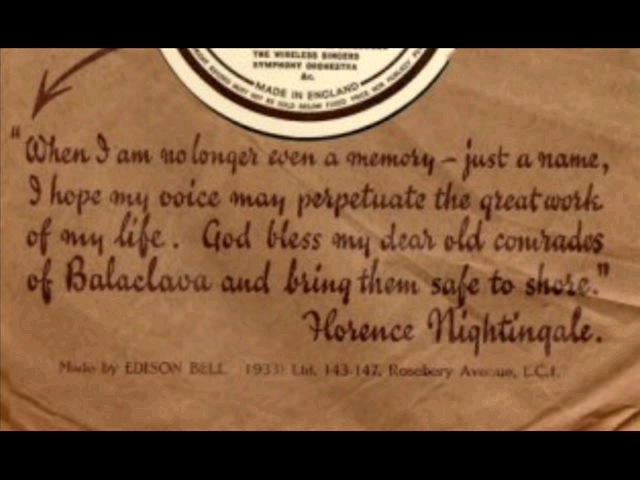 THE WIRELESS SINGERS
SYMPHONY ORCHESTRA
&c.
MADE IN ENGLAND
MUST NOT BE SOLD BELOW FIXED PRICE NOR PUBLICLY
"When I am no longer even a memory – just a name,
I hope my voice may perpetuate the great work
of my life. God bless my dear old comrades
of Balaclava and bring them safe to shore."
Florence Nightingale.
Made by EDISON BELL (1933) Ltd. 143-147, Rosebery Avenue, E.C.1.